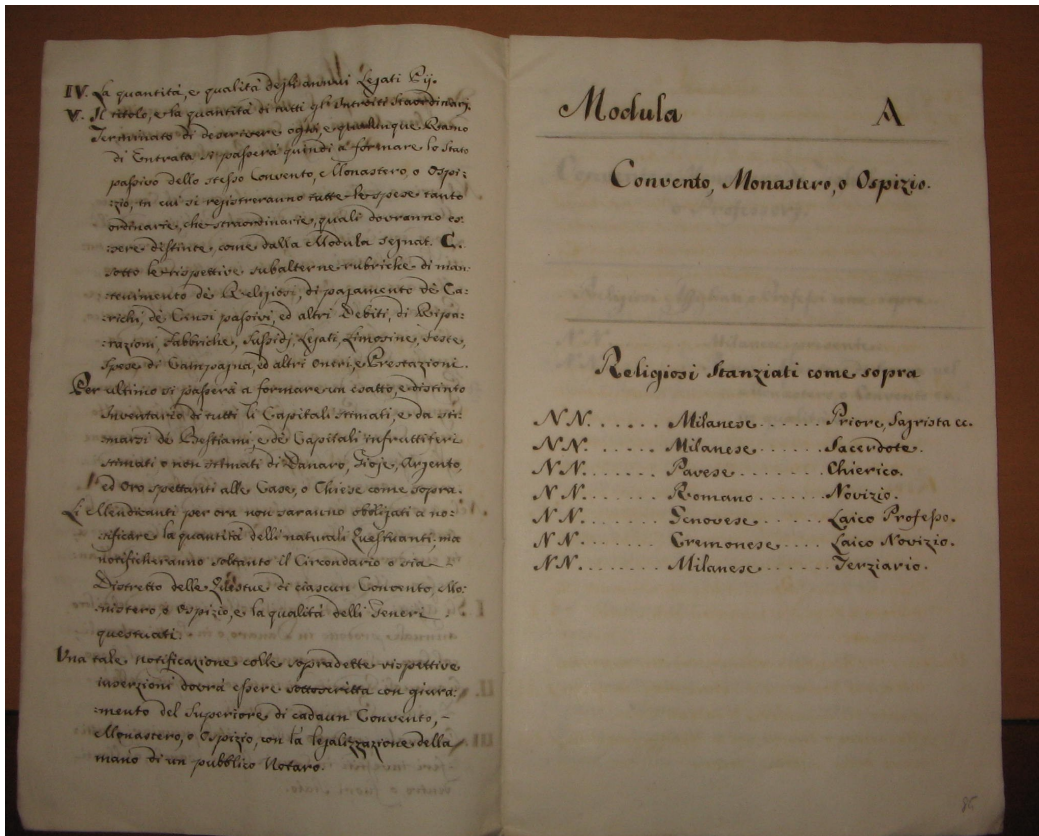 IV. La quantità, e qualità degli annui Legati Pij.
V. Il titolo, e la quantità di tutti gl'Introiti straordinarj.
Terminato di descrivere ogni, e qualunque Ramo
di Entrata si passerà quindi a formare lo Stato
passivo dello stesso Convento, Monastero, o Ospi:
:zio, in cui si registreranno tutte le spese tanto
ordinarie, che straordinarie, quali dovranno es:
:sere distinte, come dalla Modula segnat. C.
sotto le rispettive subalterne rubriche di man:
:tenimento de Religiosi, di pagamento de Ca:
:richi, de Censi passivi, ed altri Debiti, di Ripa:
:razioni, Fabbriche, Sussidj, Legati, Limosine, Feste,
Spese di Campagna, ed altri Oneri, e Prestazione.
Per ultimo si passerà a formare un esatto, e distinto
Inventario di tutti li Capitali stimati, e da sti:
:marsi de Bestiami, e de Capitali infruttiferi
stimati o non stimati di Danaro, Gioje, Argento,
ed Oro spettanti alle Case, o Chiese come sopra.
Li Mendicanti per ora non saranno obbligati a no:
:tificare la quantità delli naturali Questuanti, ma
notificheranno soltanto il Circondario o sia
Distretto delle Questue di ciascun Convento, Mo:
:nistero, o Ospizio, e la qualità delli Generi
questuati.
Una tale notificazione colle sopradette rispettive
inserzioni dovrà essere sottoscritta con giura:
:mento del Superiore di cadaun Convento, -
Monastero, o Ospizio, con la legalizzazione della
mano di un pubblico Notaro.
Modula A
Convento, Monastero, o Ospizio.
Religiosi Stanziati come sopra
NN. ..... Milanese ..... Priore, Sagrista ec.
NN. ..... Milanese ..... Sacerdote.
NN. ..... Pavese ..... Chierico.
NN. ..... Romano ..... Novizio.
NN. ..... Genovese ..... Laico Professo.
NN. ..... Cremonese ..... Laico Novizio.
NN. ..... Milanese ..... Terziario.